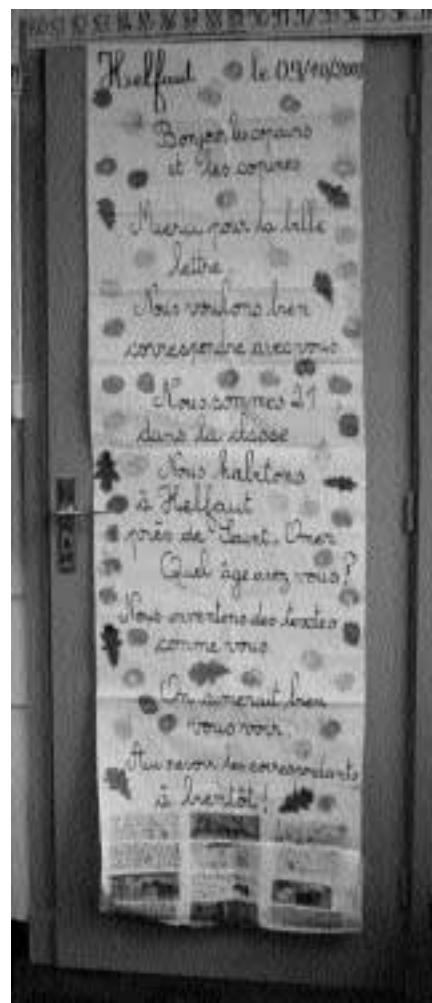 Helfaut le 09/10/200
Bonjour les copains
et les copines
Merci pour la belle
lettre
Nous voulons bien
correspondre avec vous
Nous sommes 21
dans la classe
Nous habitons
à Helfaut
près de Saint-Omer
Quel âge avez vous?
Nous inventons des textes
comme vous
On aimerait bien
vous voir.
Au revoir les correspondants
à bientôt!